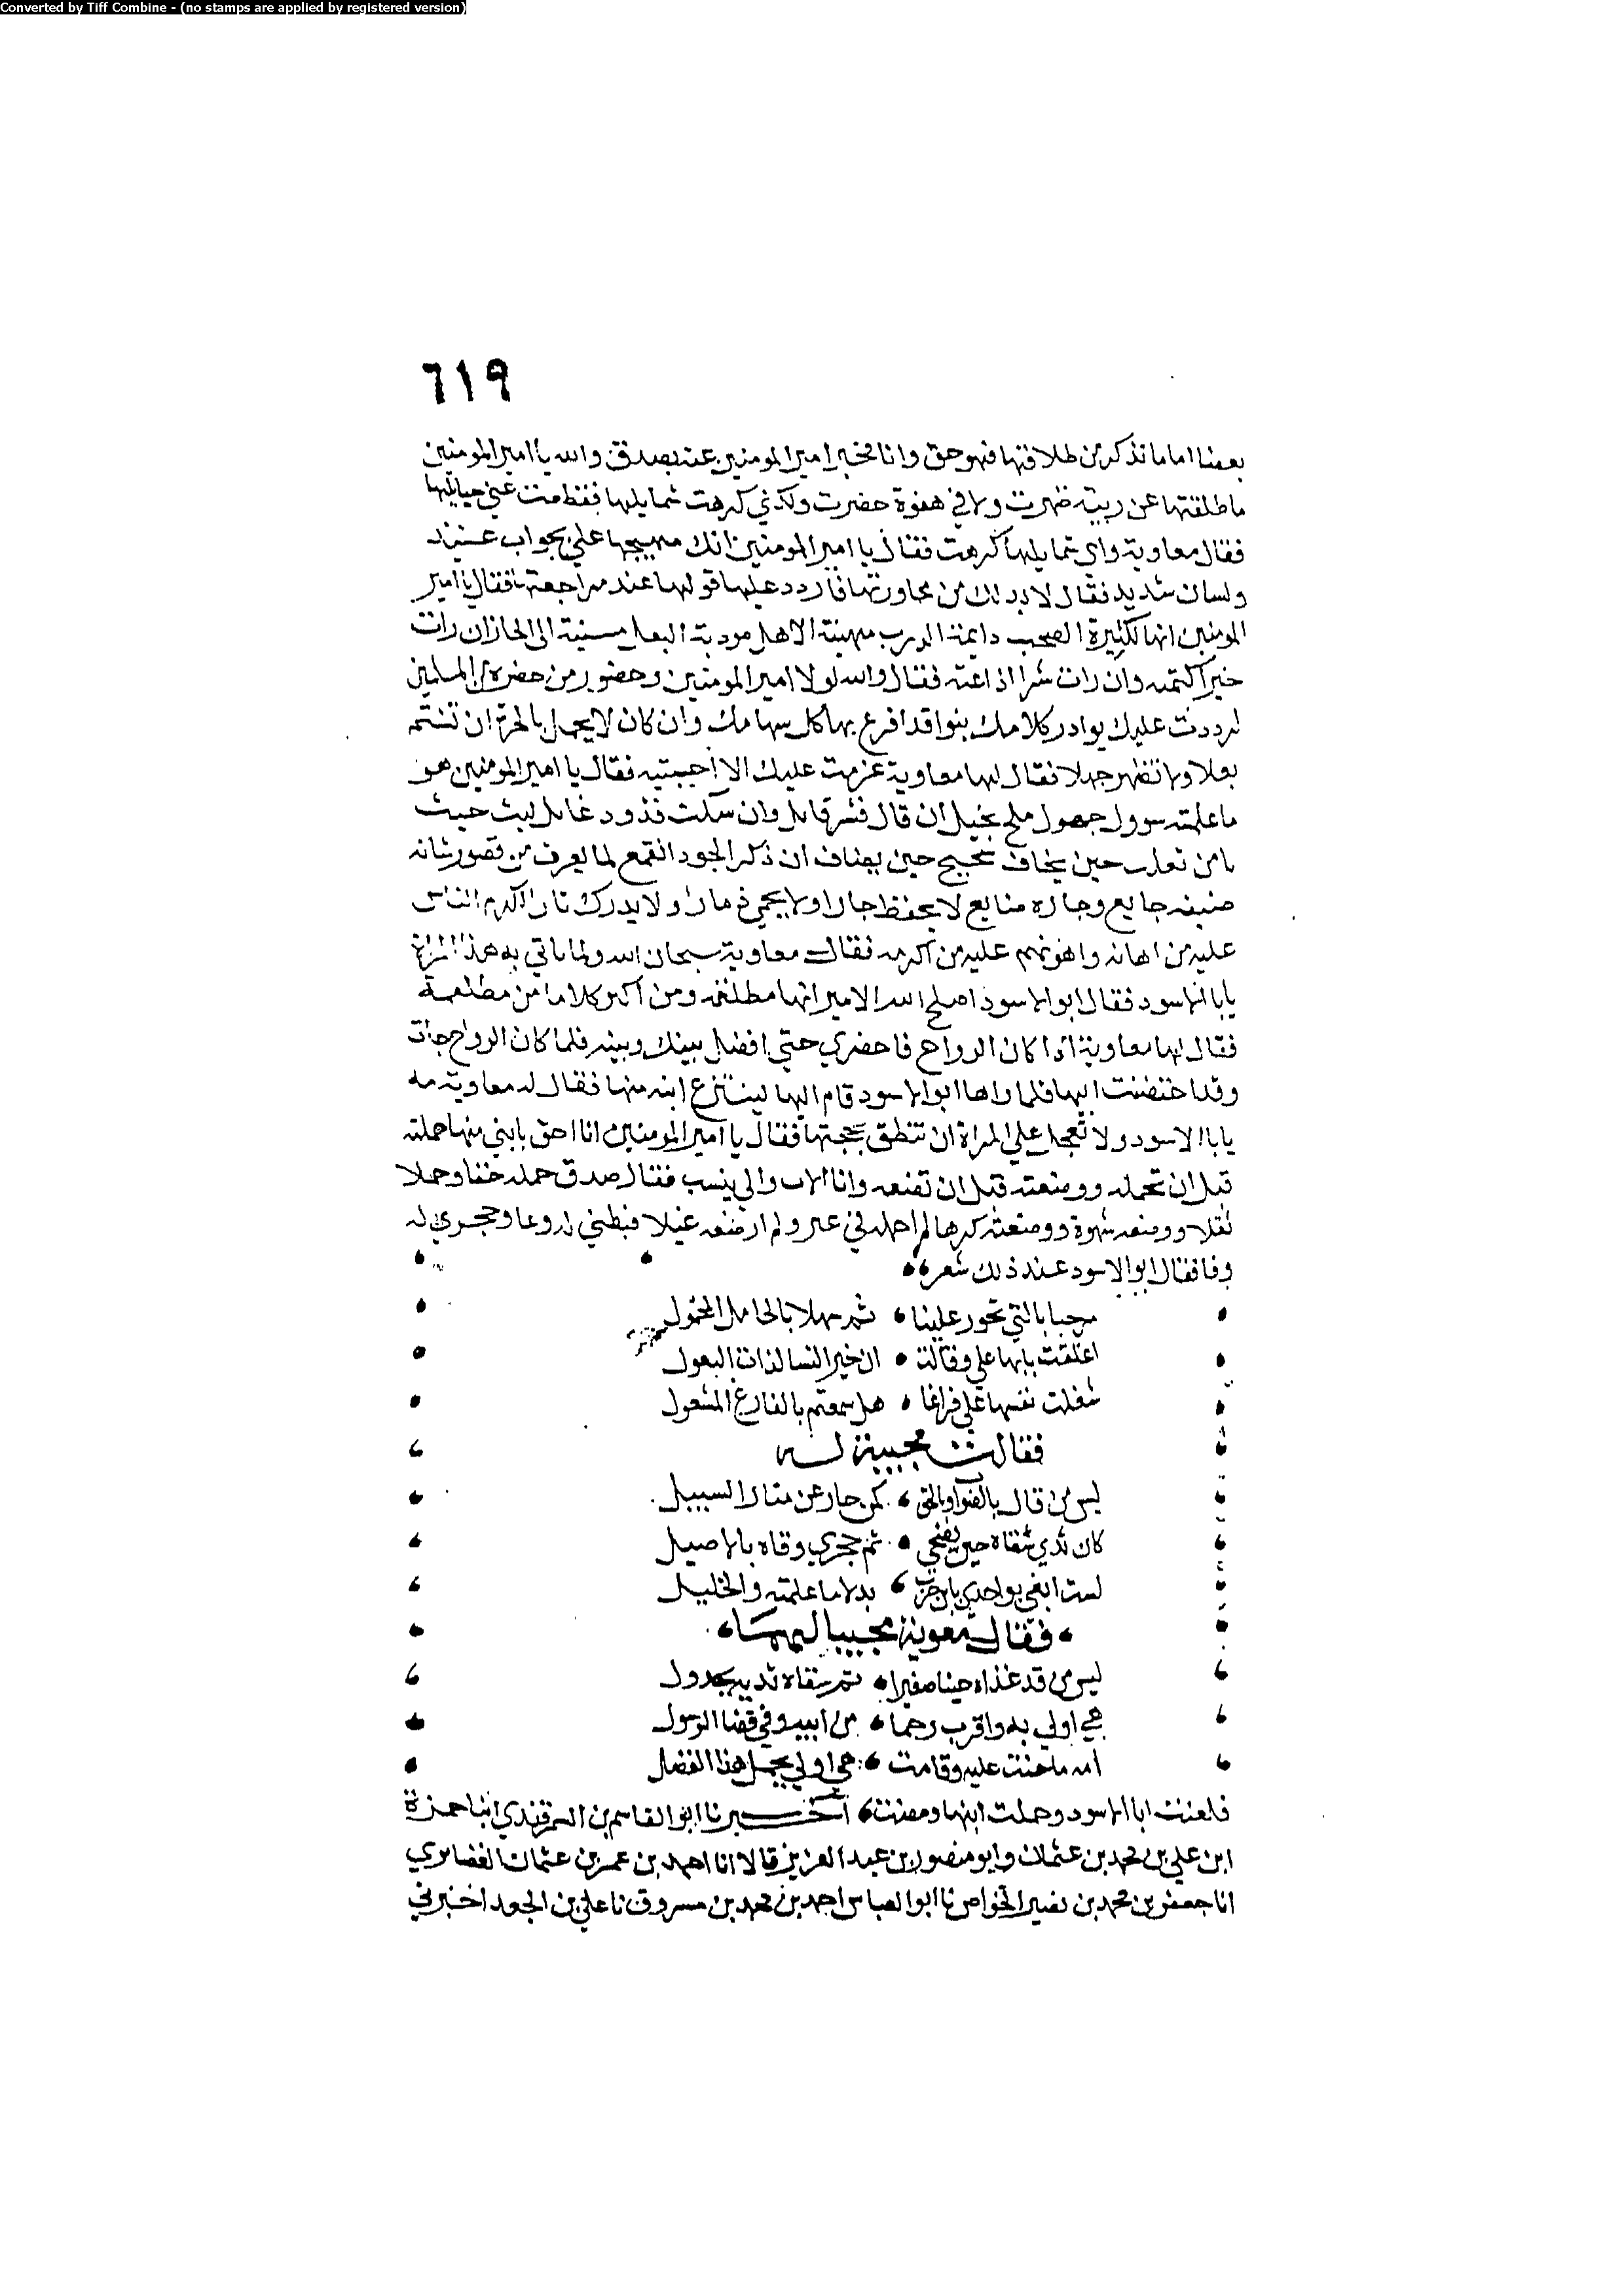 Converted by Tiff Combine - (no stamps are applied by registered version)
٦١٩
بعضنا اما ما تذكر من طلاقها فهو حق وانا مخبر امير المومنين عنه بصدق والله يا امير المومنين
ما طلقتها عن ريبة ظهرت ولا في هفوة حضرت ولكني كرهت شمايلها فقطعت عني حبايلها
فقال معاوية واي شمايلها كرهت فقال يا امير المومنين انك مهيجها علي بجواب عنيد
ولسان شديد فقال لا بد لك من محاورتها فاردد عليها قولها عند مراجعتها فقال يا امير
المومنين انها لكثيرة الصخب دايمة الدرب مهينة الاهل موذية البعل مسيية الى الجار ان رات
خيرا كتمته وان رات شرا اذاعته فقال والله لولا امير المومنين وحضور من حضره من المسلمين
لرددت عليك بوادر كلامك بنوافذ افرع بها كل سهامك وان كان لا يجمل بالحرة ان تشتم
بعلا ولا تظهر جهلا فقال لها معاوية عزمت عليك الا اجبتيه فقال يا امير المومنين هو
ما علمته سوول جهول ملح بخيل ان قال فشر قايل وان سكت فذو د غايل ليث حيث
يامن ثعلب حين يخاف شحيح حين يضاف ان ذكر الجود انقمع لما يعرف من قصور شانه
ضيفه جايع وجاره ضايع لا يحفظ جارا ولا يحمي ذمارا ولا يدرك ثارا اكرم الناس
عليه من اهانه واهونهم عليه من اكرمه فقال معاوية سبحان الله ولما تاتي به هذا المراة
يابا الاسود فقال ابو الاسود اصلح الله الامير انها مطلقة ومن اكبر كلاما من مطلقة
فقال لها معاوية اذا كان الرواح فاحضري حتى افصل بينك وبينه فلما كان الرواح جات
وقد احتضنت ابنها فلما راها ابو الاسود قام اليها لينتزع ابنه منها فقال له معاوية مه
يابا الاسود ولا تعجل على المراة ان تنطق بحجتها فقال يا امير المومنين انا احق بابني منها حملته
قبل ان تحمله ووضعته قبل ان تضعه وانا الاب والي ينسب فقال صدق حمله خفا وحملا
ثقلا ووضعه شهوة ووضعته كرها لم احمله في غير ولم ارضعه غيلا فبطني له وعا وحجري له
وفا فقال ابو الاسود عند ذلك شعره
مرحبا بالتي تجور علينا ثم سهلا بالحامل المحمول
اغلقت بابها علي وقالت ان خير النسا لذات البعول
شغلت نفسها علي فراغا هل سمعتم بالفارغ المشغول
فقالت مجيبة له
ليس من قال بالصواب وبالحق كمن حار عن منار السبيل
كان ثدي سقاه حين يضحي ثم حجري وقاه بالاصيل
لست ابغي بواحدي يابن حرب بدلا ما علمته والخليل
فقال معوية مجيبا لهما
ليس من قد غذاه حينا صغيرا ثم سقاه ثديه بجدول
هي اولى به واقرب رحما من ابيه وفي قضا الرسول
امه ما حنت عليه وقامت هي اولى بحمل هذا الفصال
فلعنت ابا الاسود وحملت ابنها ومضت اخبرنا ابو القاسم بن السمرقندي انبا حمزة
ابن علي بن محمد بن عثمان وابو منصور بن عبد العزيز قالا انا احمد بن عمر بن عثمان الغضايري
انا جعفر بن محمد بن نصير الخواص نا ابو العباس احمد بن محمد بن مسروق نا علي بن الجعد اخبرني